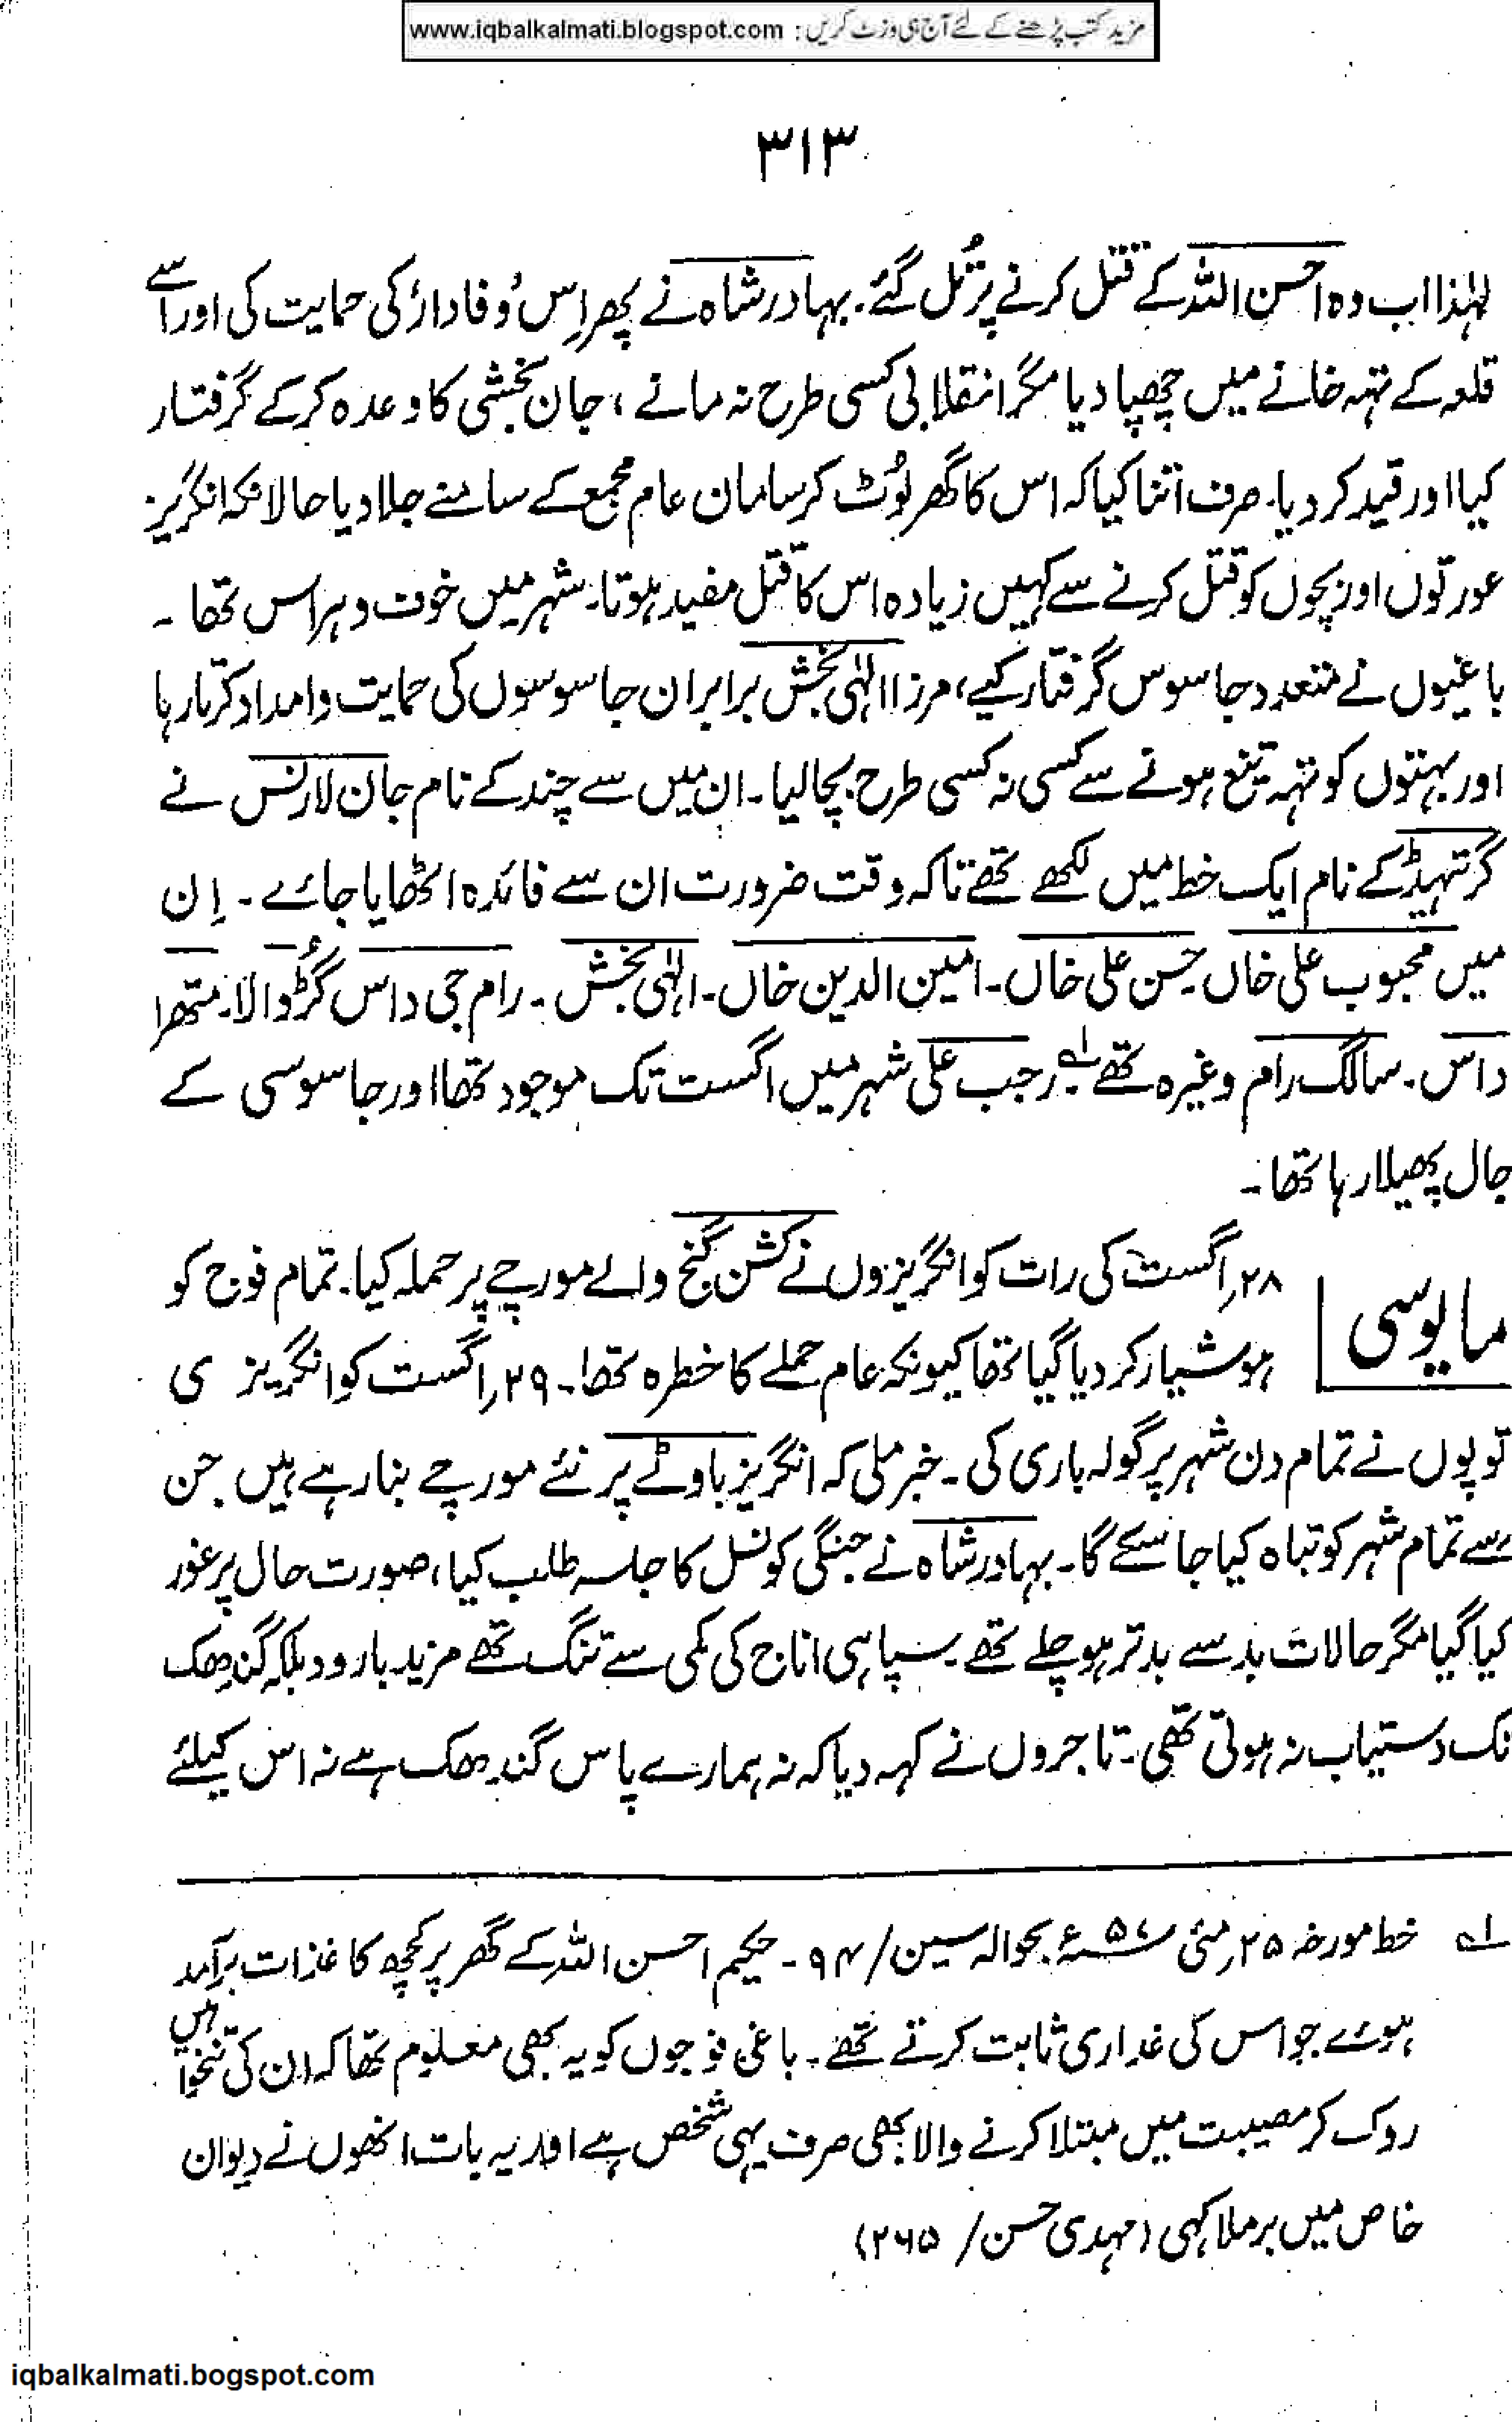 مزید کتب پڑھنے کے لئے آج ہی وزٹ کریں : www.iqbalkalmati.blogspot.com
۳۱۳
لہٰذا اب وہ احسن اللہ کے قتل کرنے پر تُل گئے۔ بہادر شاہ نے پھر اِس وُفادار کی حمایت کی اور اُسے
قلعہ کے تہہ خانے میں چھپا دیا مگر انقلابی کسی طرح نہ مانے، جان بخشی کا وعدہ کر کے گرفتار
کیا اور قید کر دیا۔ صرف اتنا کیا کہ اس کا گھر لُوٹ کر سامان عام مجمع کے سامنے جلا دیا حالانکہ انگریز
عورتوں اور بچوں کو قتل کرنے سے کہیں زیادہ اس کا قتل مفید ہوتا۔ شہر میں خوف و ہراس تھا۔
باغیوں نے متعدد جاسوس گرفتار کیے، مرزا الٰہی بخش برابر ان جاسوسوں کی حمایت و امداد کرتا رہا
اور بہتوں کو تہہ تیغ ہونے سے کسی نہ کسی طرح بچا لیا۔ ان میں سے چند کے نام جان لارنس نے
گرتہیڈ کے نام ایک خط میں لکھے تھے تاکہ وقت ضرورت ان سے فائدہ اٹھایا جائے۔ اِن
میں محبوب علی خاں۔ حسن علی خاں۔ امین الدین خاں۔ الٰہی بخش۔ رام جی داس گُڑوالا۔ متھرا
داس۔ سالگ رام وغیرہ تھے لہ رجب علی شہر میں اگست تک موجود تھا اور جاسوسی کے
جال پھیلا رہا تھا۔
مایوسی
۲۸؍ اگست کی رات کو انگریزوں نے کشن گنج والے مورچے پر حملہ کیا۔ تمام فوج کو
ہوشیار کر دیا گیا تھا کیونکہ عام حملے کا خطرہ تھا۔ ۲۹؍ اگست کو انگریزی
توپوں نے تمام دن شہر پر گولہ باری کی۔ خبر ملی کہ انگریز باوٹے پر نئے مورچے بنا رہے ہیں جن
سے تمام شہر کو تباہ کیا جا سکے گا۔ بہادر شاہ نے جنگی کونسل کا جلسہ طلب کیا، صورت حال پر غور
کیا گیا مگر حالات بد سے بدتر ہو چلے تھے۔ سپاہی اناج کی کمی سے تنگ تھے مزید بارود بلکہ گندھک
تک دستیاب نہ ہوتی تھی۔ تاجروں نے کہہ دیا کہ نہ ہمارے پاس گندھک ہے نہ اس کیلئے
لہ خط مورخہ ۲۵؍ مئی ۵۷ء بحوالہ سین/۹۴۔ حکیم احسن اللہ کے گھر پر کچھ کاغذات برآمد
ہوئے جو اس کی غداری ثابت کرتے تھے۔ باغی فوجوں کو یہ بھی معلوم تھا کہ ان کی تنخواہیں
روک کر مصیبت میں مبتلا کرنے والا بھی صرف یہی شخص ہے اور یہ بات انھوں نے دیوان
خاص میں برملا کہی (مہدی حسن/ ۲۶۵)
iqbalkalmati.bogspot.com